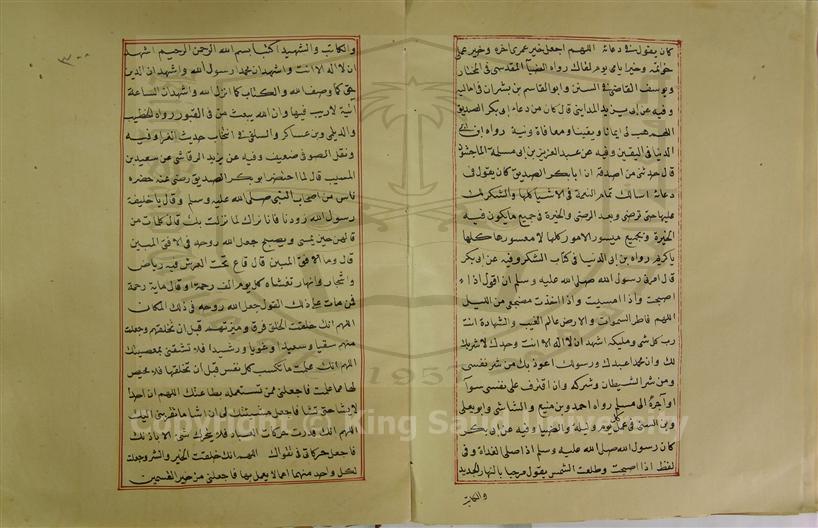 كان يقول في دعائه اللهم اجعل خير عمري اخره وخير عملي
خواتمه وخير ايامي يوم لقاك رواه الضيآ المقدسي في المختار
ويوسف القاضي في السنن وابو القاسم بن بشران في اماليه
وفيه عن ابي يزيد المدايني قال كان من دعاء ابي بكر الصديق
اللهم هب لي ايمانا ويقينا ومعافاة ونية رواه ابن ابي
الدنيا في اليقين وفيه عن عبد العزيز بن ابي سلمة الماجشون
قال حدثني من اصدقه ان ابا بكر الصديق كان يقول في
دعائه اسالك تمام النعمة في الاشيا كلها والشكر لك
عليها حتى ترضى وبعد الرضى والخيرة في جميع ما يكون فيه
الخيرة وبجميع ميسور الامور كلها لا معسورها كلها
ياكريم رواه بن ابي الدنيا في كتاب الشكر وفيه عن ابي بكر
قال امرني رسول الله صلى الله عليه وسلم ان اقول اذا
اصبحت واذا امسيت واذا اخذت مضجعي من الليل
اللهم فاطر السموات والارض عالم الغيب والشهادة انت
رب كل شي ومليكه اشهد ان لا اله الا انت وحدك لا شريك
لك وان محمد اعبدك ورسولك اعوذ بك من شر نفسي
ومن شر الشيطان وشركه وان اقترف على نفسي سوآ
او اجره الى مسلم رواه احمد وبن منيع والشاشي وابو يعلى
وبن السني في عمل يوم وليلة والضيا وفيه عن ابي بكر
كان رسول الله صلى الله عليه وسلم اذا صلى الغداة وفي
لفظ اذا اصبحت وطلعت الشمس يقول مرحبا بالنهار الجديد
والكاتب
والكاتب والشهيد اكتبا بسم الله الرحمن الرحيم اشهد
ان لا اله الا انت واشهد ان محمدا رسول الله واشهد ان الدين
حق كما وصف الله والكتاب كما انزل الله واشهد ان الساعة
آتية لا ريب فيها وان الله يبعث من في القبور رواه الخطيب
والديلمي وبن عساكر والسلفي في انتخاب حديث الفراء وفيه
ونقل الصوفي ضعيف وفيه عن يزيد الرقاشي عن سعيد بن
المسيب قال لما احتضر ابو بكر الصديق رضي عنه حضره
ناس من اصحاب النبي صلى الله عليه وسلم وقال يا خليفة
رسول الله زودنا فانا نراك لما نزلت بك قال كلمات من
قالهن حين يمسي ويصبح جعل الله روحه في الافق المبين
قال وما الافق المبين قال قاع تحت العرش فيه رياض
واشجار وانهار تغشاه كل يوم الف رحمة او قال ماية رحمة
فمن مات على ذلك القول جعل الله روحه في ذلك المكان
اللهم انك خلقت الخلق فرقا وميزتهم قبل ان تخلقهم وجعلت
منهم شقيا وسعيدا وغويا ورشيدا فلا تشقني بمعصيتك
اللهم انك علمت ما تكسب كل نفس قبل ان تخلقها فلا محيص
لها مما علمت فاجعلني ممن تستعمله بطاعتك اللهم ان احدا
لا يشا حتى تشا فاجعل مشيئتك لي ان اشا ما يقربني اليك
اللهم انك قدرت حركات العباد فلا يتحرك شي الا باذنك
فاجعل حركاتي في تقواك اللهم انك خلقت الخير والشر وجعلت
لكل واحد منهما اعمالا يعمل بها فاجعلني من خير القسمين
Copyright © King Saud University
1957